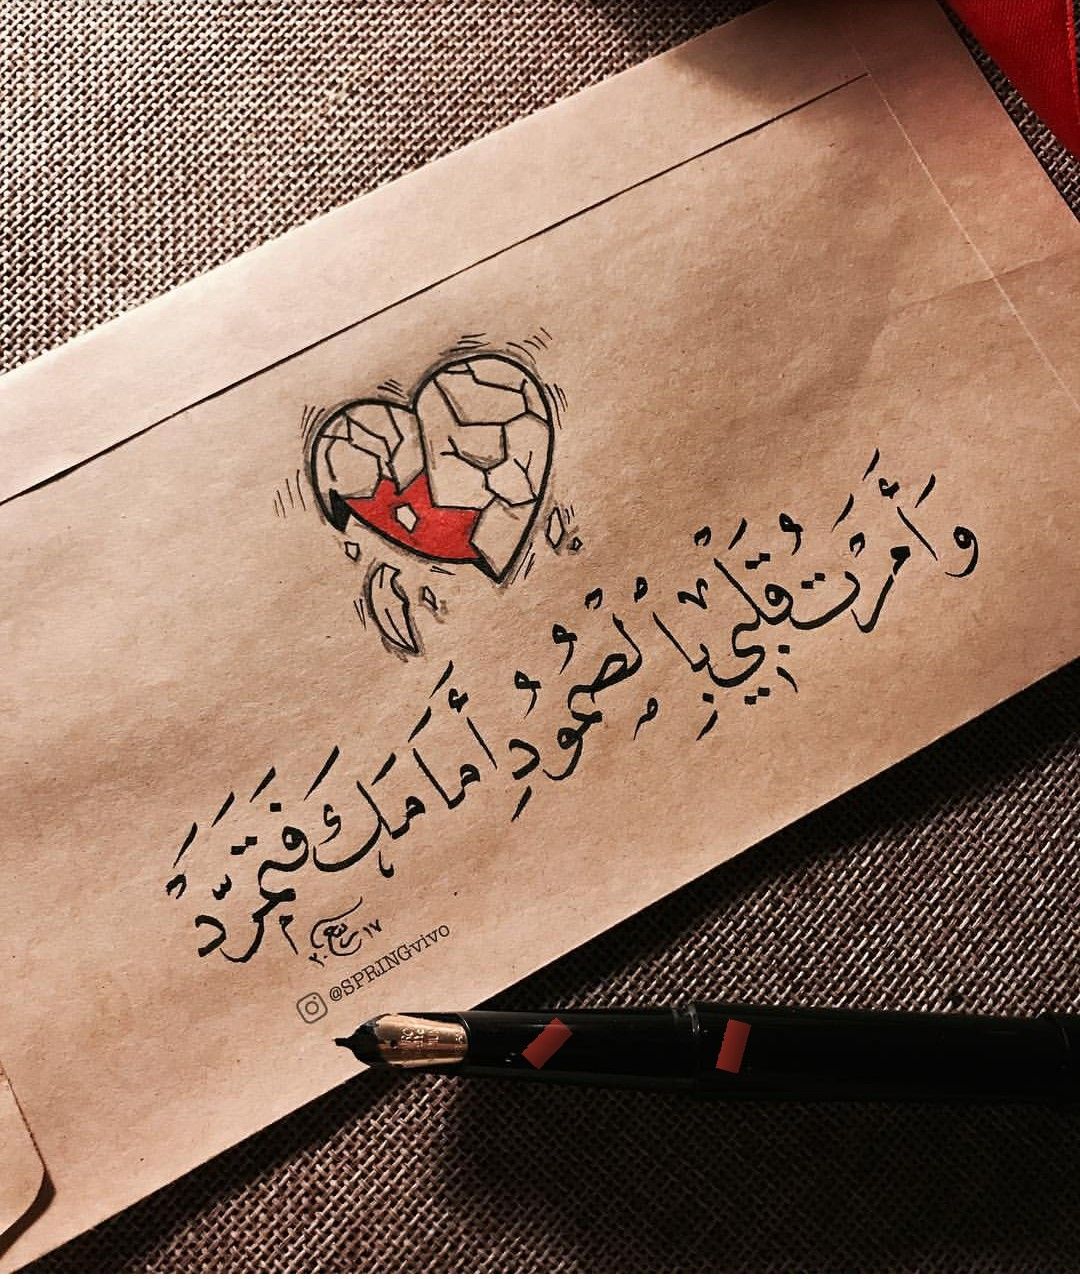 وَأَمَرْتُ قَلْبِي بِالْصُمُودِ أَمَامَكَ فَتَمَرَّدَ
ربيع ٢٠١٧م
@SPRINGvivo